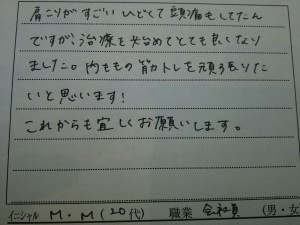 肩こりがすごいひどくて頭痛もしてたん
ですが、治療を始めてとても良くなり
ました。内ももの筋トレを頑張りた
いと思います!
これからも宜しくお願いします。
イニシャル M・M (20代) 職業 会社員 (男・女